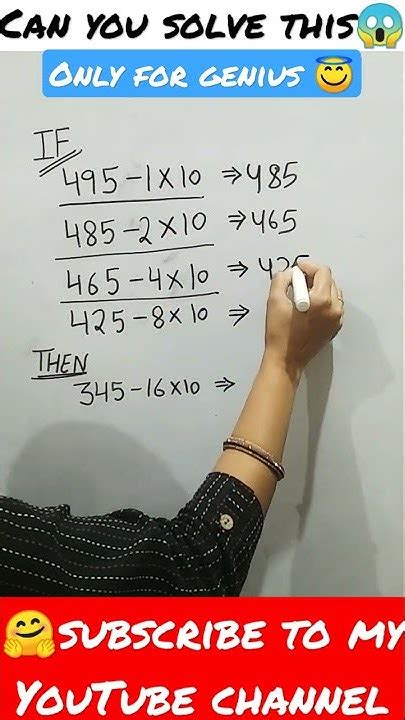 CAN YOU SOLVE THIS😱
ONLY FOR GENIUS 😇
IF
495-1×10 ⇒485
485-2×10 ⇒465
465-4×10 ⇒ 425
425-8×10 ⇒
THEN
345-16×10 ⇒
🤗SUBSCRIBE TO MY
YOUTUBE CHANNEL